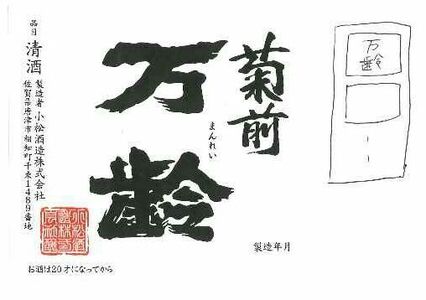 菊前
まんれい
万齢
品目 清酒
製造者 小松酒造株式会社
佐賀市唐津市相知町千束1489番地
製造年月
お酒は20才になってから
万
齢